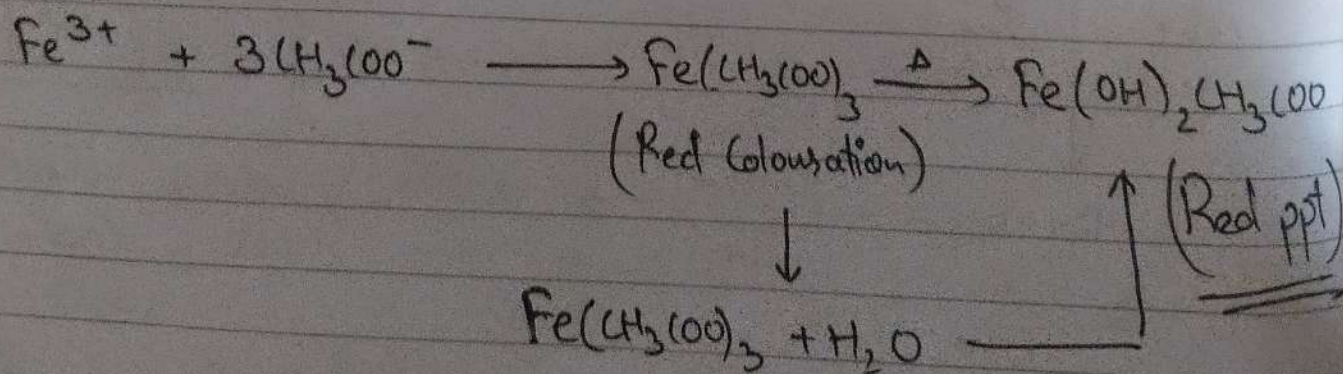 Fe³⁺ + 3CH₃COO⁻ ⟶ Fe(CH₃COO)₃ —Δ→ Fe(OH)₂CH₃COO
(Red Colousation) (Red ppt)
↓
Fe(CH₃COO)₃ + H₂O